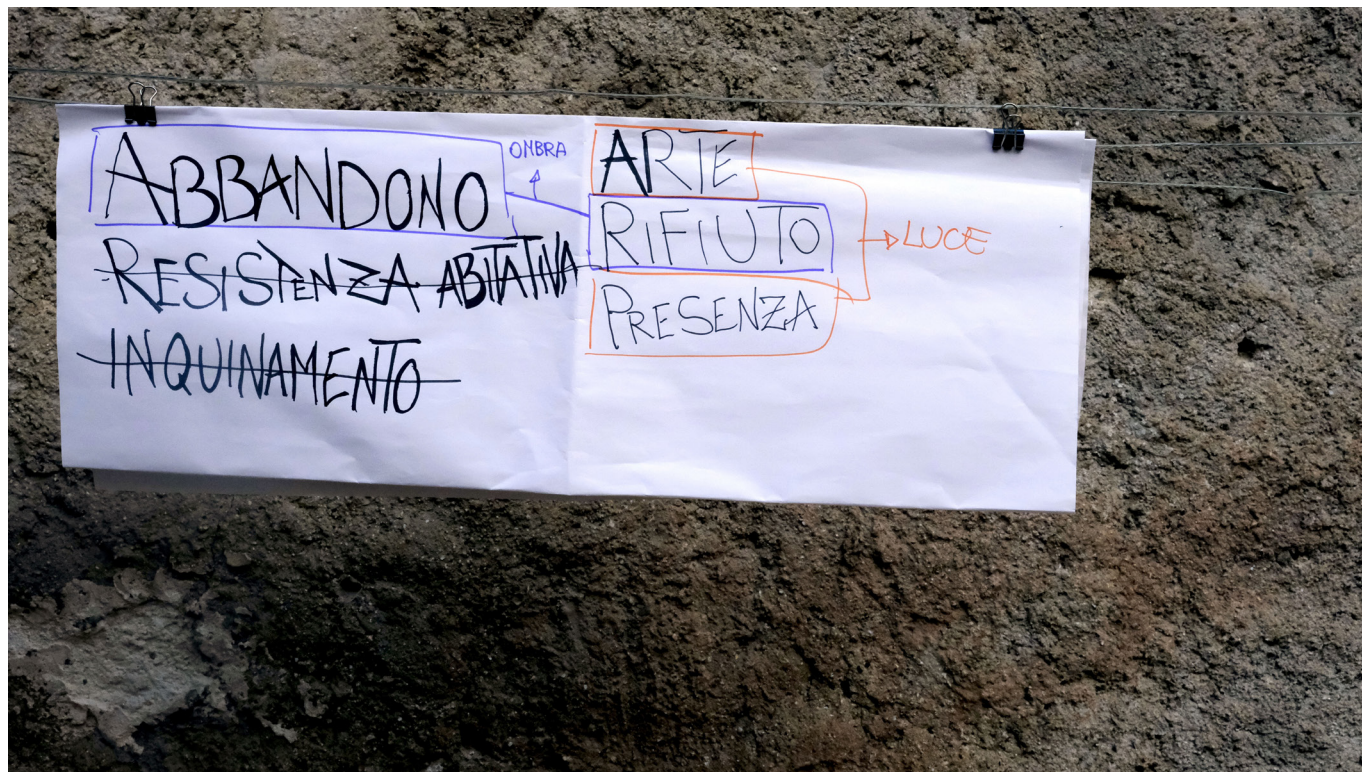 ABBANDONO
RESISTENZA ABITATIVA
INQUINAMENTO
OMBRA
ARTE
RIFIUTO
PRESENZA
LUCE